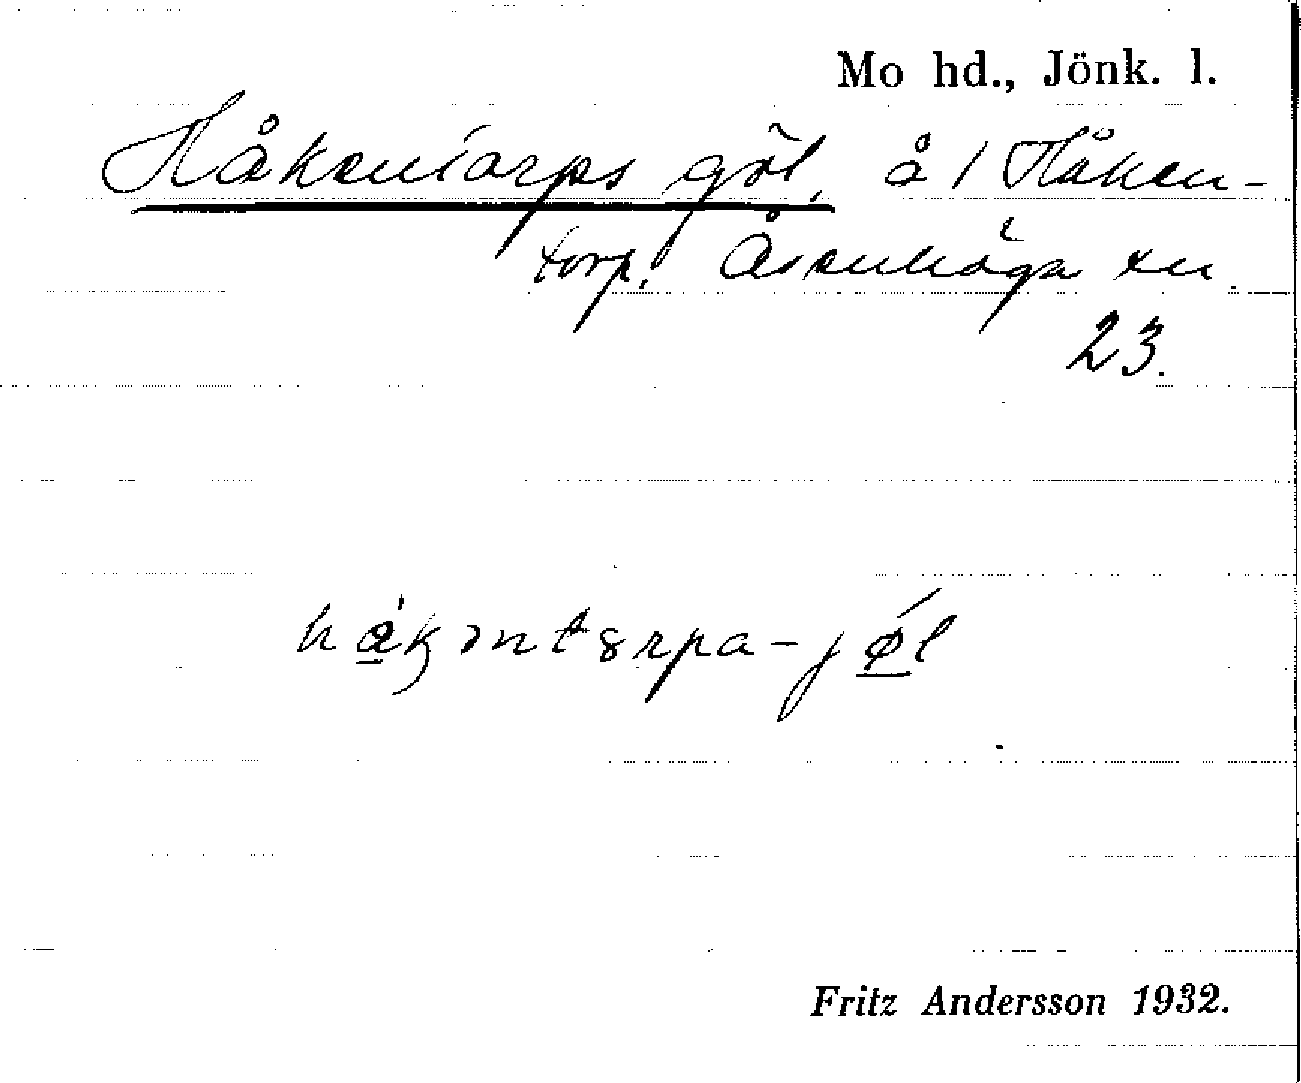 Mo hd., Jönk. l.
Håkentorps göl, å 1 Håken-
torp. Åsenhöga sn
23.
håkəntørpa-jøl
Fritz Andersson 1932.